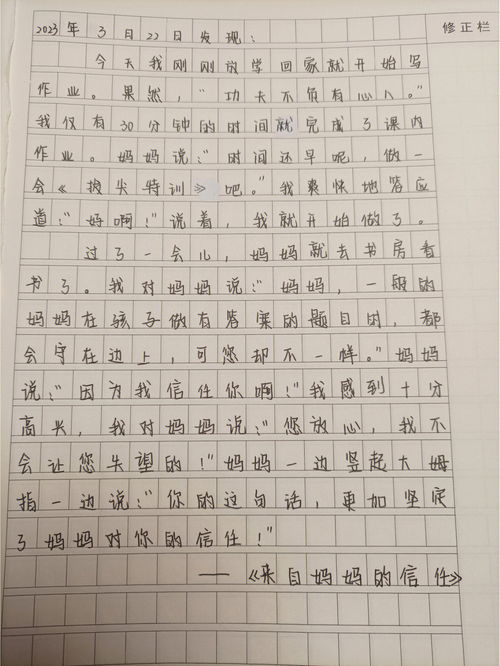 修正栏
2023年3月22日发现：
今天我刚刚放学回家就开始写
作业。果然，“功夫不负有心人。”
我仅有30分钟的时间就完成了课内
作业。妈妈说：“时间还早呢，做一
会《拔尖特训》吧。”我爽快地答应
道：“妈啊！”说着，我就开始做了。
过了一会儿，妈妈就去书房看
书了。我对妈妈说：“妈妈，一般的
妈妈在孩子做有答案的题目时，都
会守在边上，可您却不一样。”妈妈
说：“因为我信任你啊！”我感到十分
高兴，我对妈妈说：“您放心，我不
会让您失望的！”妈妈一边竖起大姆
指一边说：“你的这句话，更加坚定
了妈妈对你的信任！”
——《来自妈妈的信任》